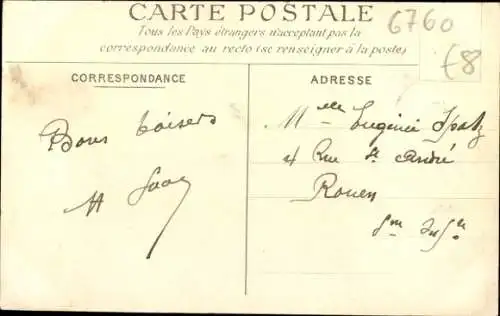 CARTE POSTALE
Tous les Pays étrangers n'acceptant pas la
correspondance au recto (se renseigner à la poste)
6760
£8
CORRESPONDANCE
Bons baisers
ADRESSE
Melle Eugénie Spatz
4 Rue St André
Rouen
Sne Infre